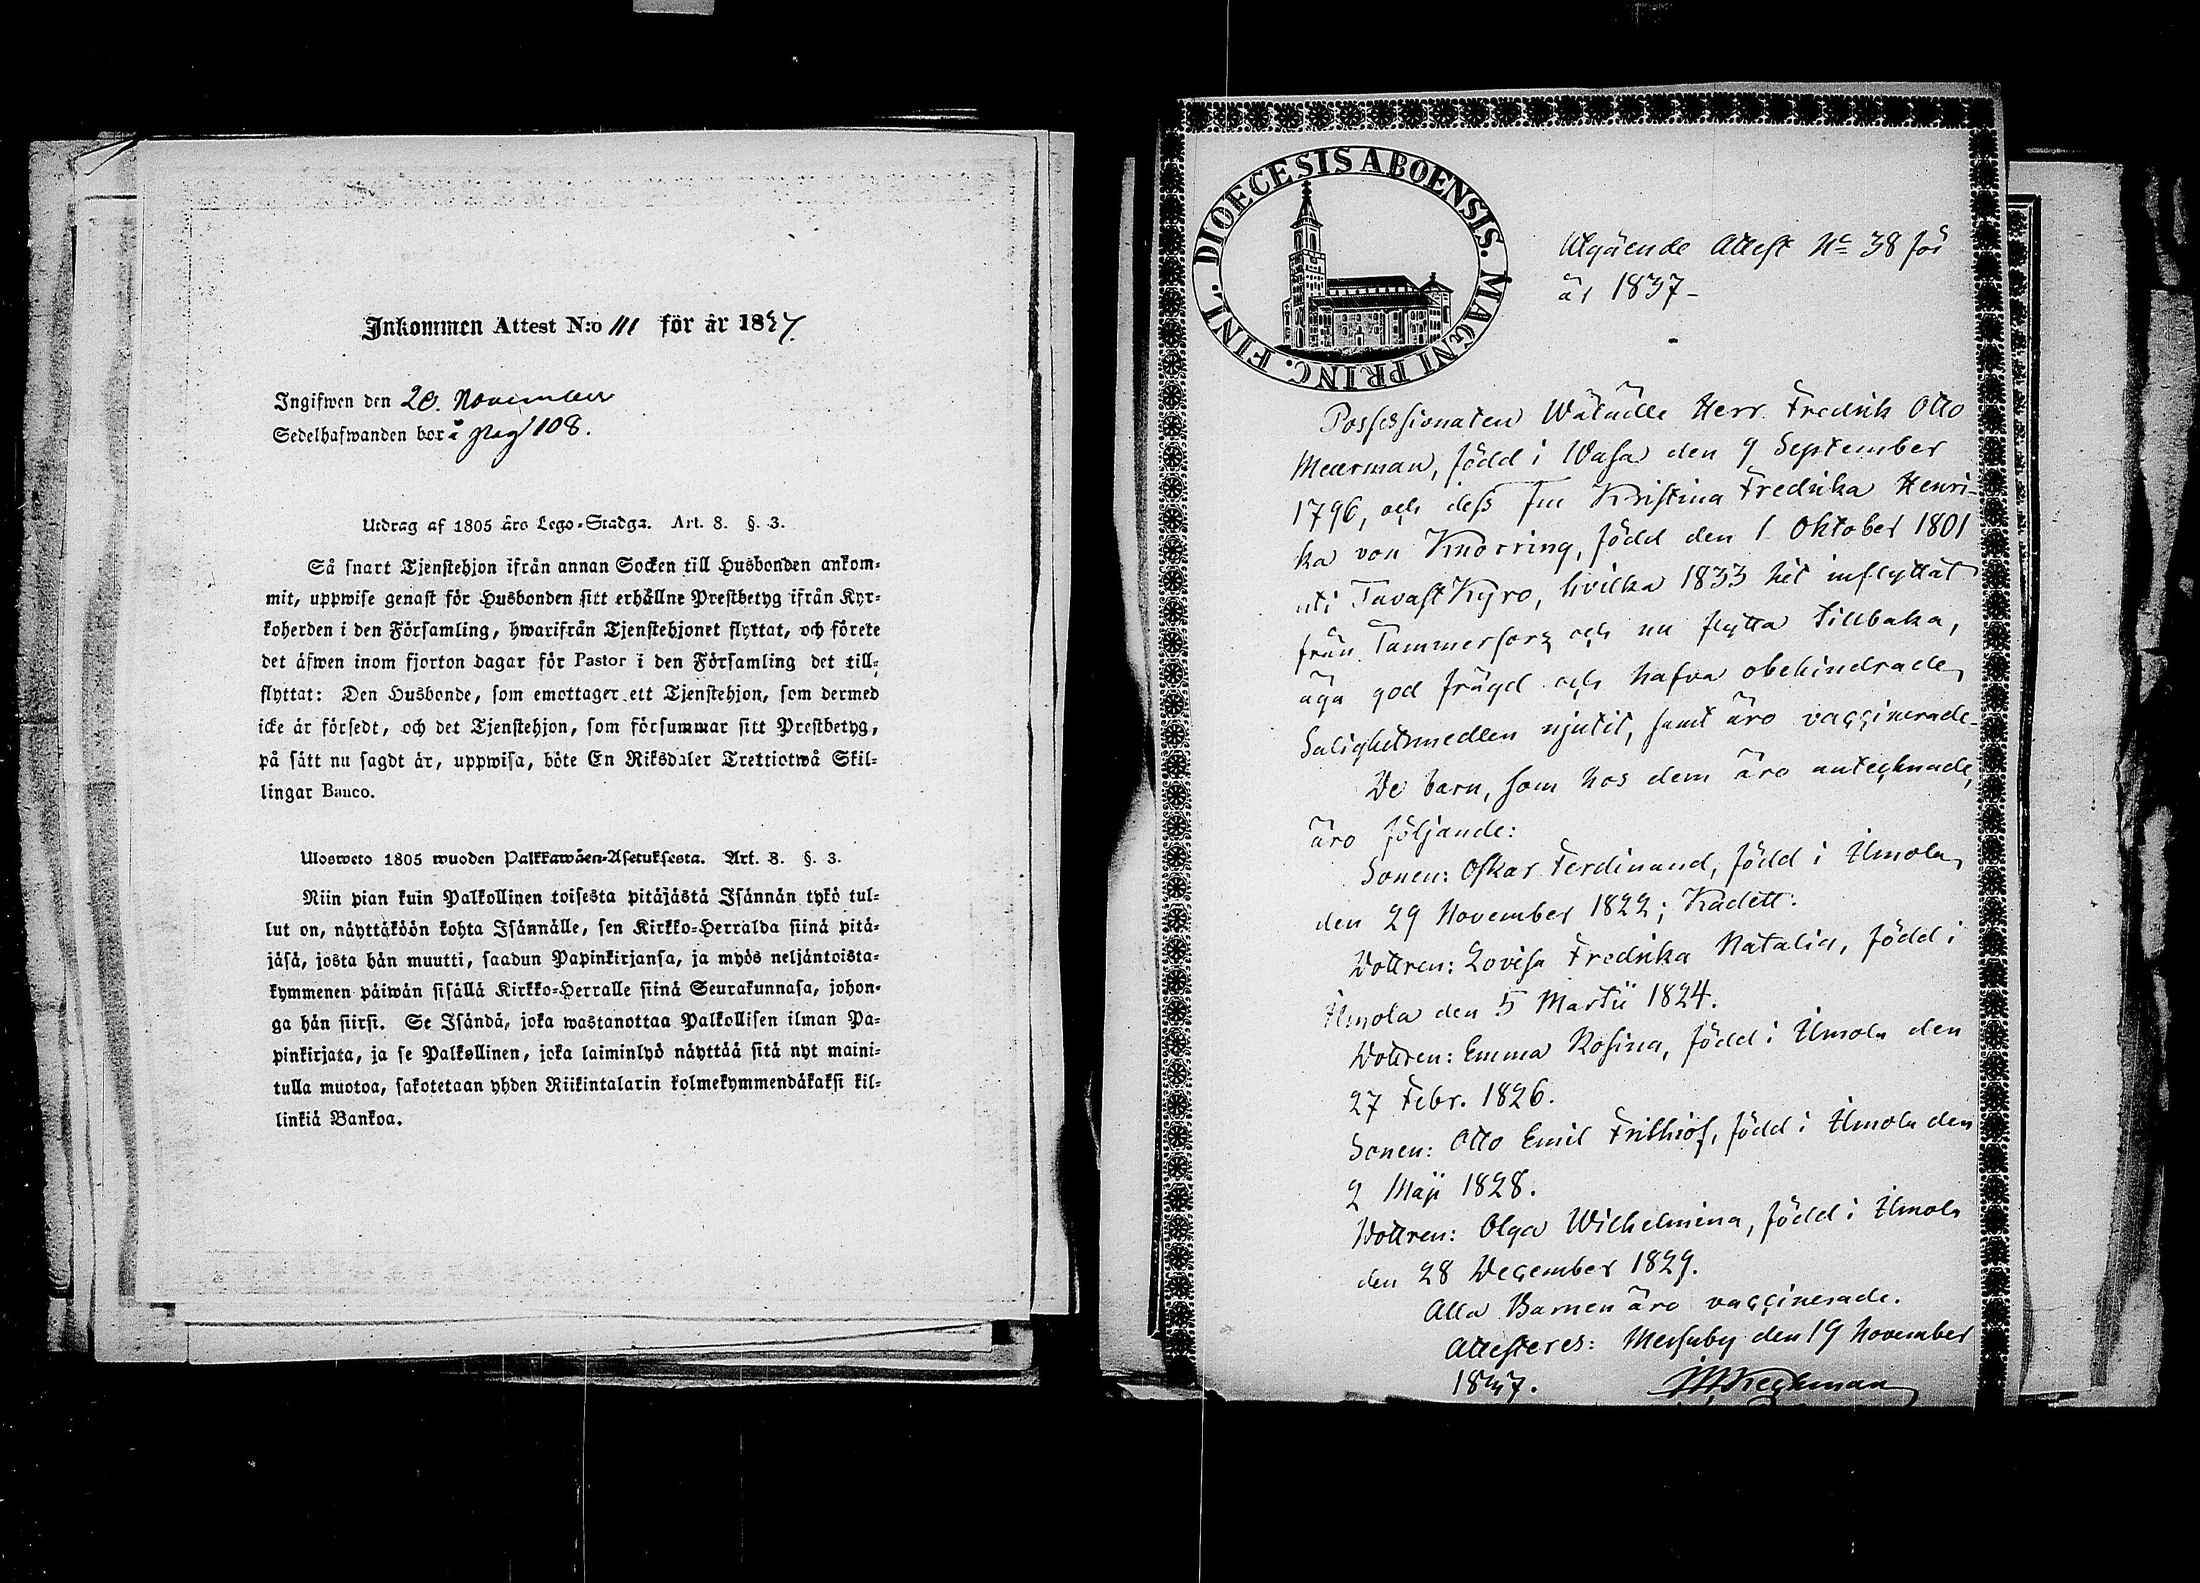 Inkommen Attest N:o 111 för år 1837.
Ingifwen den 20. November
Sedelhafwanden bor å pag 108.
Utdrag af 1805 års Lego-Stadga. Art. 8. §. 3.
Så snart Tjenstehjon ifrån annan Socken till Husbonden ankom-
mit, uppwise genast för Husbonden sitt erhållne Prestbetyg ifrån Kyr-
koherden i den Församling, hwarifrån Tjenstehjonet flyttat, och förete
det äfwen inom fjorton dagar för Pastor i den Församling det till-
flyttat: Den Husbonde, som emottager ett Tjenstehjon, som dermed
icke är försedt, och det Tjenstehjon, som försummar sitt Prestbetyg,
på sätt nu sagdt är, uppwisa, böte En Riksdaler Trettiotwå Skil-
lingar Banco.
Ulosweto 1805 wuoden Palkkawäen-Asetuksesta. Art. 8. §. 3.
Niin pian kuin Palkollinen toisesta pitäjästä Isännän tykö tul-
lut on, näyttäköön kohta Isännälle, sen Kirkko-Herralda siinä pitä-
jäsä, josta hän muutti, saadun Papinkirjansa, ja myös neljäntoista-
kymmenen päiwän sisällä Kirkko-Herralle siinä Seurakunnasa, johon-
ga hän siirsi. Se Isändä, joka wastanottaa Palkollisen ilman Pa-
pinkirjata, ja se Palkollinen, joka laiminlyö näyttää sitä nyt maini-
tulla muotoa, sakotetaan yhden Riikintalarin kolmekymmendäkaksi kil-
linkiä Bankoa.
DIOECESIS ABOENSIS. MAGNI PRINC. FINL.
Utgående Attest No 38 för
år 1837-
Possessionaten Wälädle Herr Fredrik Otto
Meurman, född i Wasa den 9 September
1796, och dess Fru Kristina Fredrika Henri-
ka von Knorring, född den 1 Oktober 1801
uti TavastKyro, hvilka 1833 hit inflyttat
från Tammerfors och nu flytta tillbaka,
äga god frägd och hafva obehindrade
Salighetsmedlen njutit, samt äro vaccinerade.
De barn, som hos dem äro antecknade,
äro följande:
Sonen: Oskar Ferdinand, född i Ilmola
den 29 November 1822; Kadett.
Dottren: Lovisa Fredrika Natalia, född i
Ilmola den 5 Martii 1824.
Dottren: Emma Rosina, född i Ilmola den
27 Febr. 1826.
Sonen: Otto Emil Frithiof, född i Ilmola den
2 Maji 1828.
Dottren: Olga Wilhelmina, född i Ilmola
den 28 December 1829.
Alla Barnen äro vaccinerade.
Attesteres: Messuby den 19 November
1837.